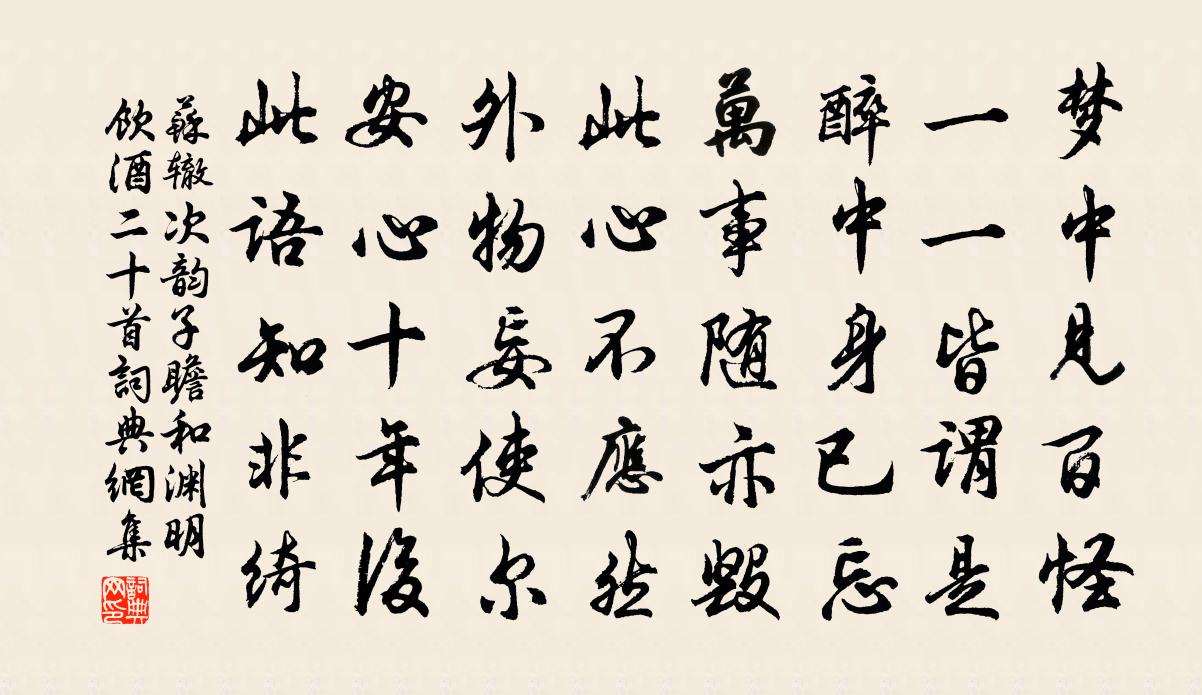 梦中见百怪
一一皆谓是
醉中身已忘
萬事随亦毁
此心不應然
外物妄使尔
安心十年後
此语知非绮
蘇辙次韵子瞻和渊明
饮酒二十首詞典網集
詞典网印